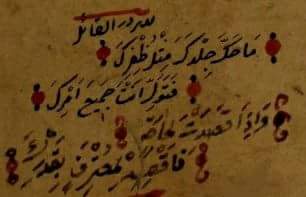 لله در القائل
ما حك جلدك مثل ظفرك
فتول انت جميع امرك
واذا قصدت لحاجة
فاقصد لمعترف بقدرك